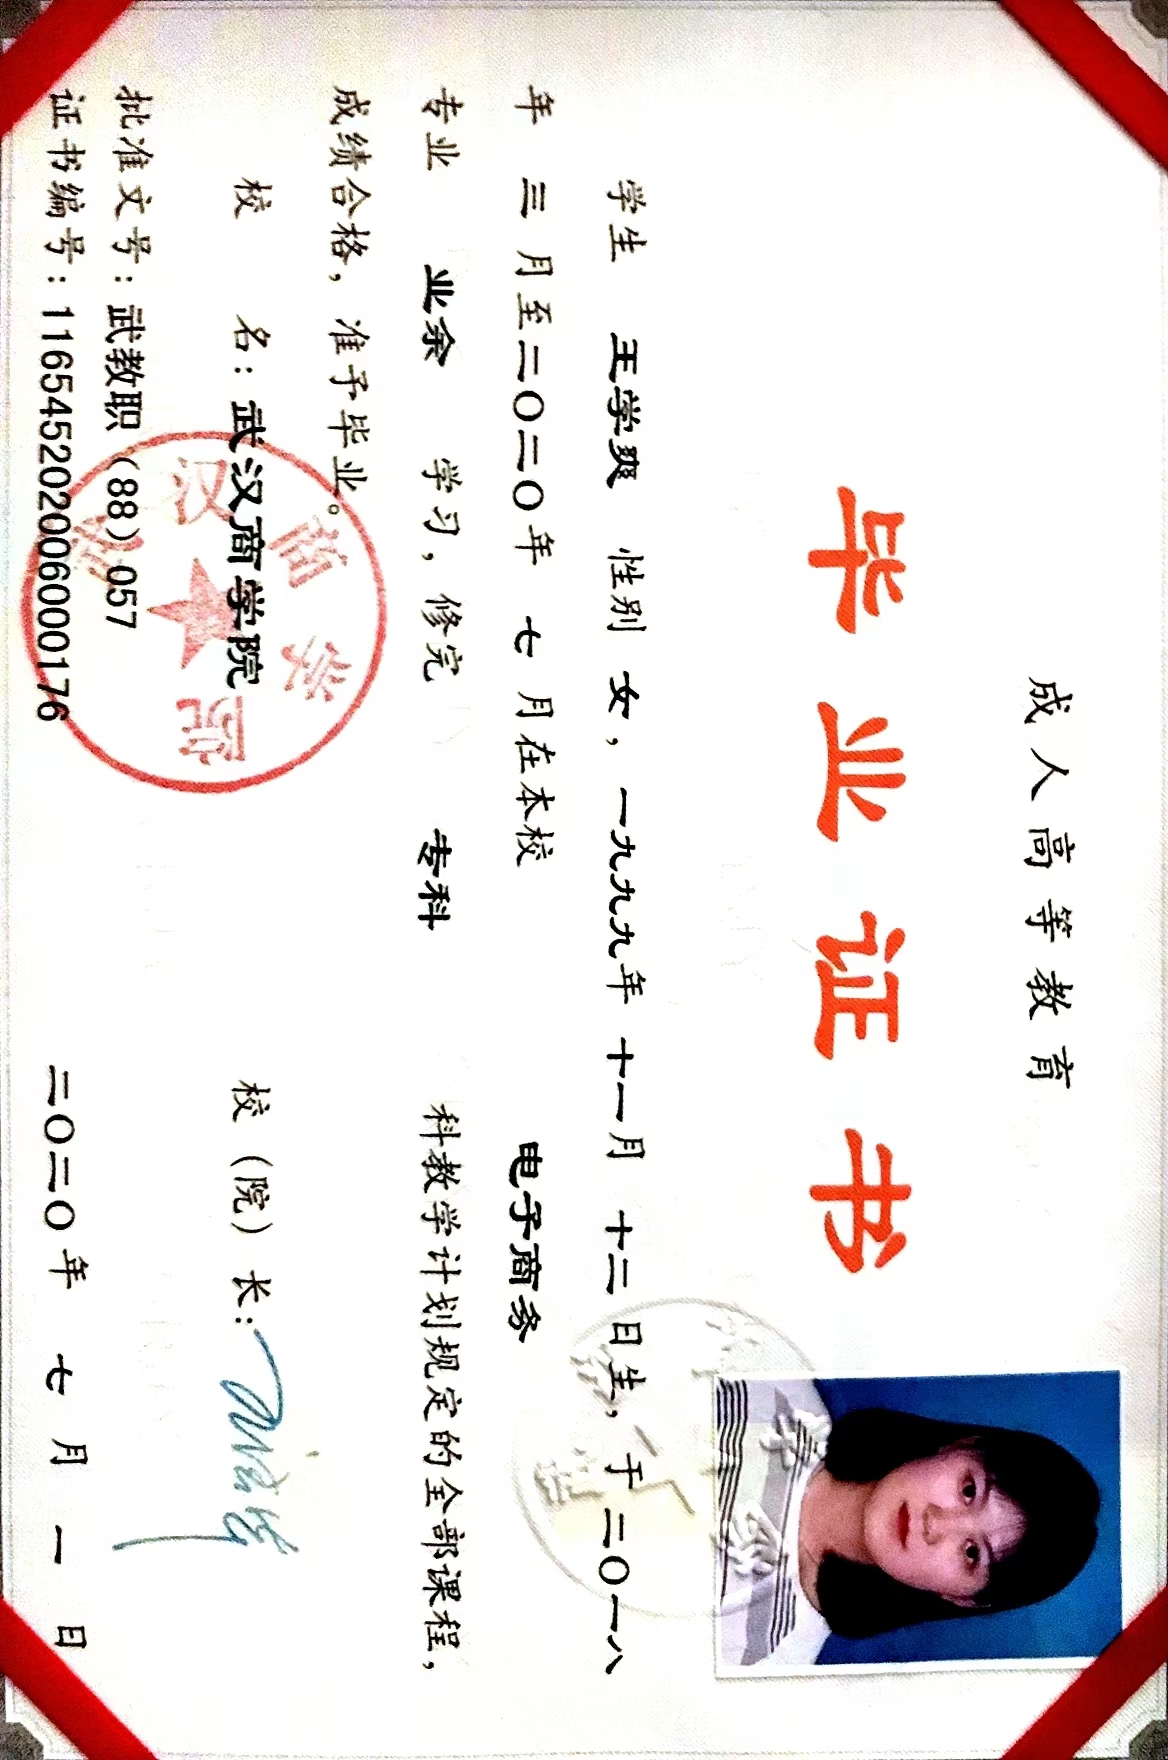 成人高等教育
毕业证书
学生 王学爽 性别 女，一九九九年 十一月 十二日生，于二〇一八
年 三 月至二〇二〇年 七 月在本校 电子商务
专业 业余 学习，修完 专科 科教学计划规定的全部课程，
成绩合格，准予毕业。
校 名：武汉商学院 校（院）长：
批准文号：武教职（88）057
证书编号：116545202006000176 二〇二〇年 七 月 一 日
武汉商学院